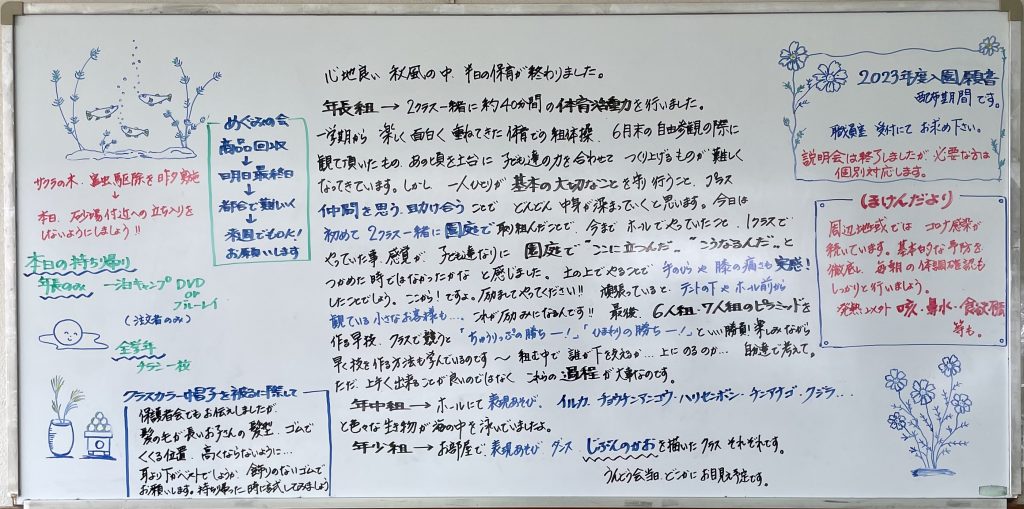 心地良い 秋風の中、本日の保育が終わりました。
年長組 → 2クラス一緒に約40分間の体育活動を行いました。
一学期から 楽しく面白く 重ねてきた 体育での組体操、6月末の自由参観の際に
観て頂いたもの、あの頃を土台に 子ども達の力を合わせて つくり上げるものが難しく
なってきています。しかし 一人ひとりが 基本の大切なことを守り行うこと、クラス
仲間を思う、助け合う ことで どんどん 中身が深まっていくと思います。今日は
初めて 2クラス一緒に 園庭で 取り組んだことで、今まで ホールでやっていたこと、1クラスで
やっていた事、感覚が 子ども達なりに 園庭で “ここに立つんだ” “こうなるんだ” と
つかめた時ではなかったかな と感じました。土の上でやることで 手のひらや 膝の痛さも 実感!
したことでしょう。ここから!ですよ。励ましてやってください!! 頑張っていると テントの下や ホール前から
観ている 小さなお客様も… これが励みになるんです!! 最後、6人組・7人組のピラミッドを
作る早技、クラスで競うと「ちゅうりっぷの勝ちー!」「ひまわりの勝ちー!」といい勝負! 楽しみながら
早く技を作る方法も学んでいるのです〜 組む中で 誰が下を支えるか… 上にのるのか… 自分達で考えて。
ただ、上手く出来ることが良いのではなく これらの 過程が大事なのです。
年中組 → ホールにて 表現あそび、イルカ・チョウチンアンコウ・ハリセンボン・クジラ…
と色々な生き物が 海の中を 泳いでいましたよ。
年少組 → お部屋で、表現あそび ダンス じぶんのかお を描いた クラス それぞれです。
うんどう会当日、どこかに お目見え予定です。
めぐみの会
商品回収
↓
明日最終日
↓
都合で難しく
↓
来週でもOK!
お願いします
サクラの木、害虫駆除を昨夕実施
↓
本日、砂場付近への立ち入りを
しないようにしましょう!!
本日の持ち帰り
年長のみ 一泊キャンプDVD
or
ブルーレイ
(注文者のみ)
全学年
チラシ一枚
クラスカラー帽子を被るに際して
保護者会でもお伝えしましたが、
髪の毛が長いお子さんの 髪型、ゴムで
くくる位置、高くならないように…
耳より下がベストでしょうか、飾りのないゴムで
お願いします。持ち帰った時に試してみましょう
2023年度入園願書
配布期間です。
職員室 受付にて お求め下さい。
説明会は終了しましたが 必要な方は
個別対応します。
(ほけんだより)
周辺地域では コロナ感染が
続いています。基本的な予防を
徹底し 毎朝の体調確認も
しっかりと行いましょう。
発熱以外 咳・鼻水・食欲
等も。